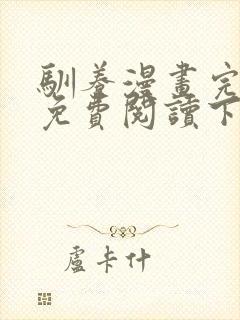 馴養漫畫完
免費閱讀下
盧卡什